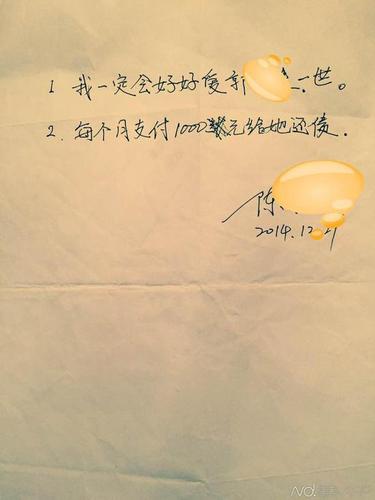 1 我一定会好好爱郭 一世。
2. 每个月支付1000元给她还债.
陈
2014.12